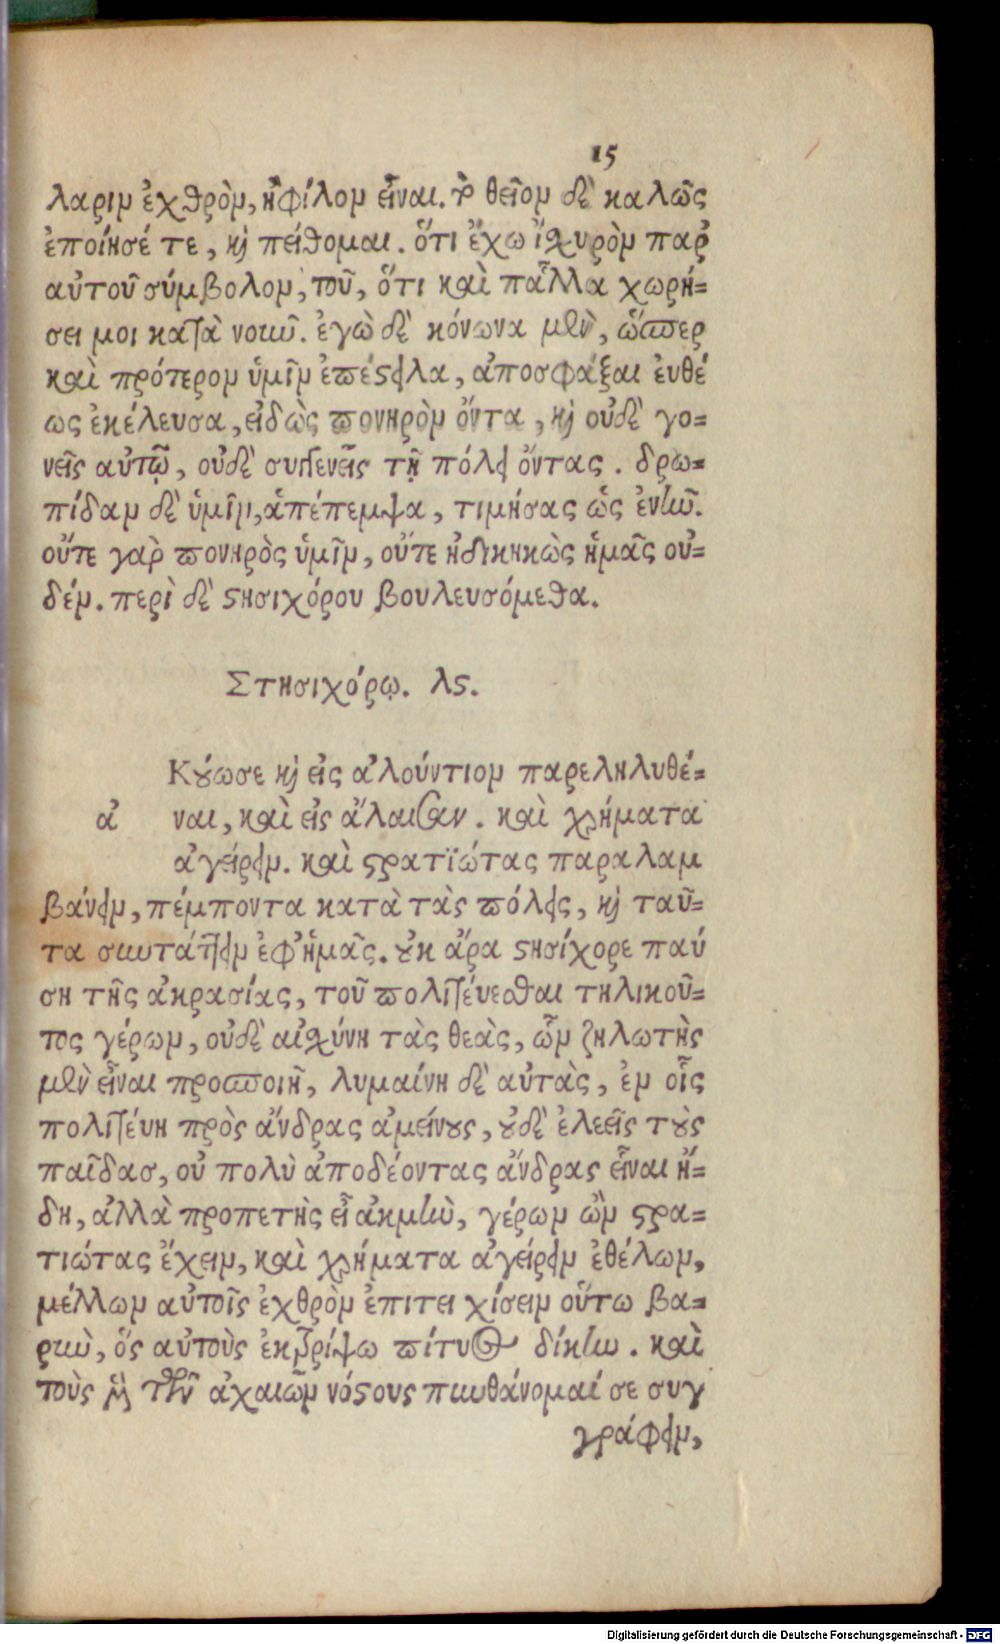 15
λαριν ἐχθρὸν, ἢ φίλον εἶναι. τὸ θεῖον δὲ καλῶς
ἐποίησέ τε, καὶ πείθομαι. ὅτι ἔχω ἰσχυρὸν παρ
αὐτοῦ σύμβολον, τοῦ, ὅτι καὶ τἆλλα χωρή-
σει μοι κατὰ νοιωῦ. ἐγὼ δὲ κόνωνα μὲν, ὥσπερ
καὶ πρότερον ὑμῖν ἐπέστειλα, ἀποσφάξαι ἐυθέ
ως ἐκέλευσα, εἰδὼς πονηρὸν ὄντα, καὶ οὐδὲ γο-
νεῖς αὐτῷ, οὐδὲ συγγενεῖς τῇ πόλει ὄντας. δρω-
πίδαν δὲ ὑμῖν, ἀπέπεμψα, τιμήσας ὡς ἐνῆν.
οὔτε γὰρ πονηρὸς ὑμῖν, οὔτε ἠδικηκὼς ἡμᾶς οὐ-
δέν. περὶ δὲ στησιχόρου βουλευσόμεθα.
Στησιχόρῳ. λς.
Κούωσε καὶ εἰς ἀλούντιον παρεληλυθέ-
ἀ ναι, καὶ εἰς ἄλαισαν. καὶ χρήματα
ἀγείρειν. καὶ στρατϊώτας παραλαμ
βάνειν, πέμποντα κατὰ τὰς πόλεις, καὶ ταῦ-
τα συντάττειν ἐφ' ἡμᾶς. οὐκ ἄρα στησίχορε παύ
ση τῆς ἀκρασίας, τοῦ πολιτεύεσθαι τηλικοῦ-
τος γέρων, οὐδὲ αἰσχύνη τὰς θεὰς, ὧν ζηλωτὴς
μὲν εἶναι προσποιῆ, λυμαίνη δὲ αὐτὰς, ἐν οἷς
πολιτεύη πρὸς ἄνδρας ἀμείνους, οὐδὲ ἐλεεῖς τοὺς
παῖδασ, οὐ πολὺ ἀποδέοντας ἄνδρας εἶναι ἤ-
δη, ἀλλὰ προπετὴς εἶ ἀκμὴν, γέρων ὢν στρα-
τιώτας ἔχειν, καὶ χρήματα ἀγείρειν ἐθέλων,
μέλλων αὐτοῖς ἐχθρὸν ἐπιτει χίσειν οὕτω βα-
ρὺν, ὃς αὐτοὺς ἐκτρίψω πίτυος δίκην. καὶ
τοὺς δὴ τῶν ἀχαιῶν νόστους πυνθάνομαί σε συγ
γράφειν,
Digitalisierung gefördert durch die Deutsche Forschungsgemeinschaft - DFG